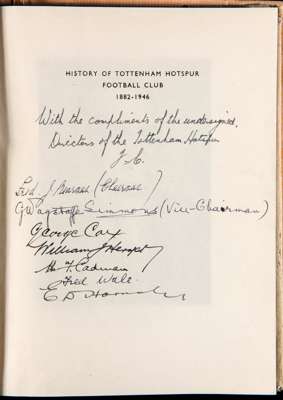 HISTORY OF TOTTENHAM HOTSPUR
FOOTBALL CLUB
1882-1946
With the compliments of the undersigned,
Directors of the Tottenham Hotspur
F.C.
Fred J. Bearman (Chairman)
G Wagstaffe Simmons (Vice-Chairman)
George Cox
William J Heryet
Wm F. Cadman
Fred Wale